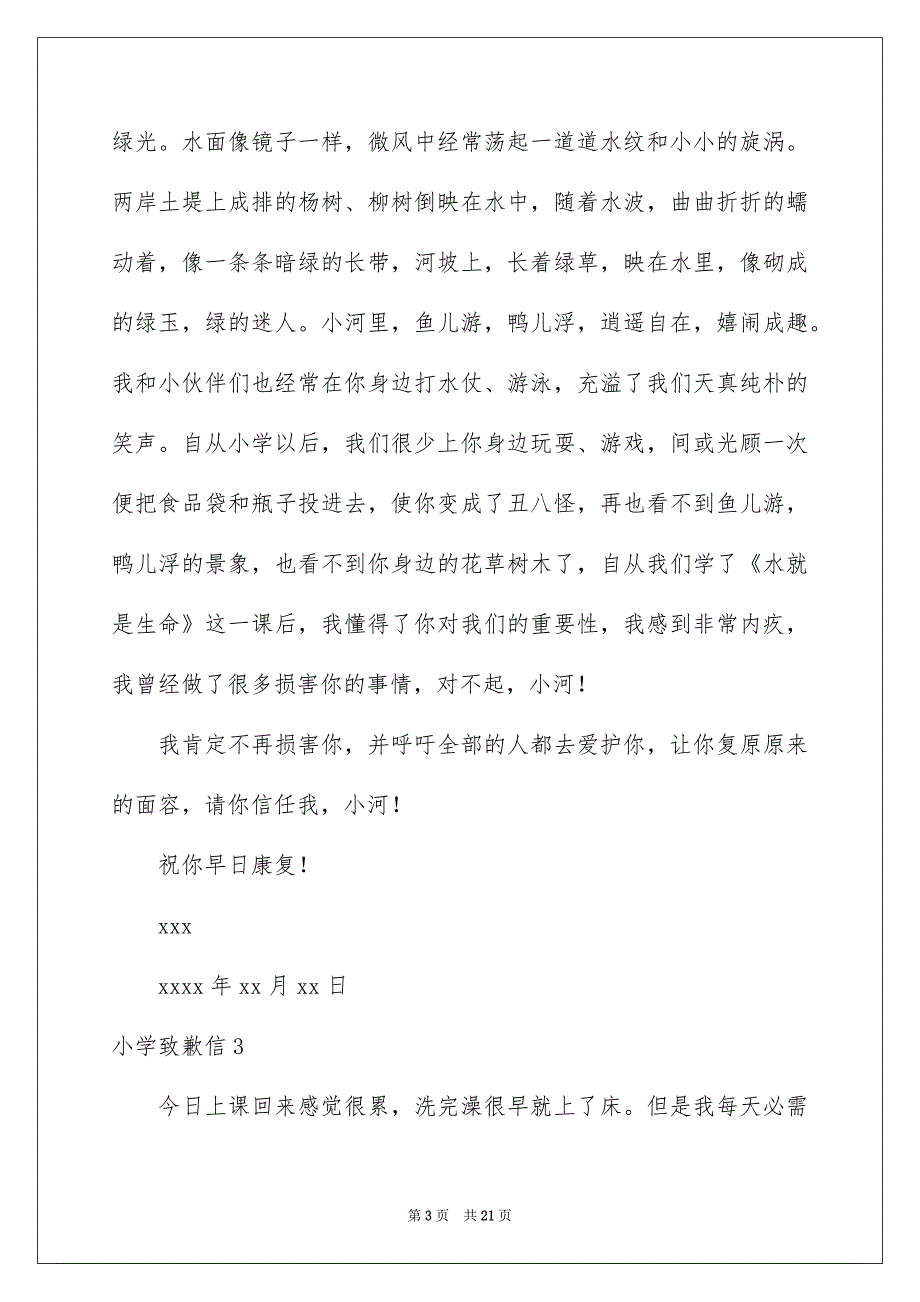 绿光。水面像镜子一样，微风中经常荡起一道道水纹和小小的旋涡。
两岸土堤上成排的杨树、柳树倒映在水中，随着水波，曲曲折折的蠕
动着，像一条条暗绿的长带，河坡上，长着绿草，映在水里，像砌成
的绿玉，绿的迷人。小河里，鱼儿游，鸭儿浮，逍遥自在，嬉闹成趣。
我和小伙伴们也经常在你身边打水仗、游泳，充溢了我们天真纯朴的
笑声。自从小学以后，我们很少上你身边玩耍、游戏，间或光顾一次
便把食品袋和瓶子投进去，使你变成了丑八怪，再也看不到鱼儿游，
鸭儿浮的景象，也看不到你身边的花草树木了，自从我们学了《水就
是生命》这一课后，我懂得了你对我们的重要性，我感到非常内疚，
我曾经做了很多损害你的事情，对不起，小河！
我肯定不再损害你，并呼吁全部的人都去爱护你，让你复原原来
的面容，请你信任我，小河！
祝你早日康复！
xxx
xxxx 年 xx 月 xx 日
小学致歉信 3
今日上课回来感觉很累，洗完澡很早就上了床。但是我每天必需
第 3 页 共 21 页